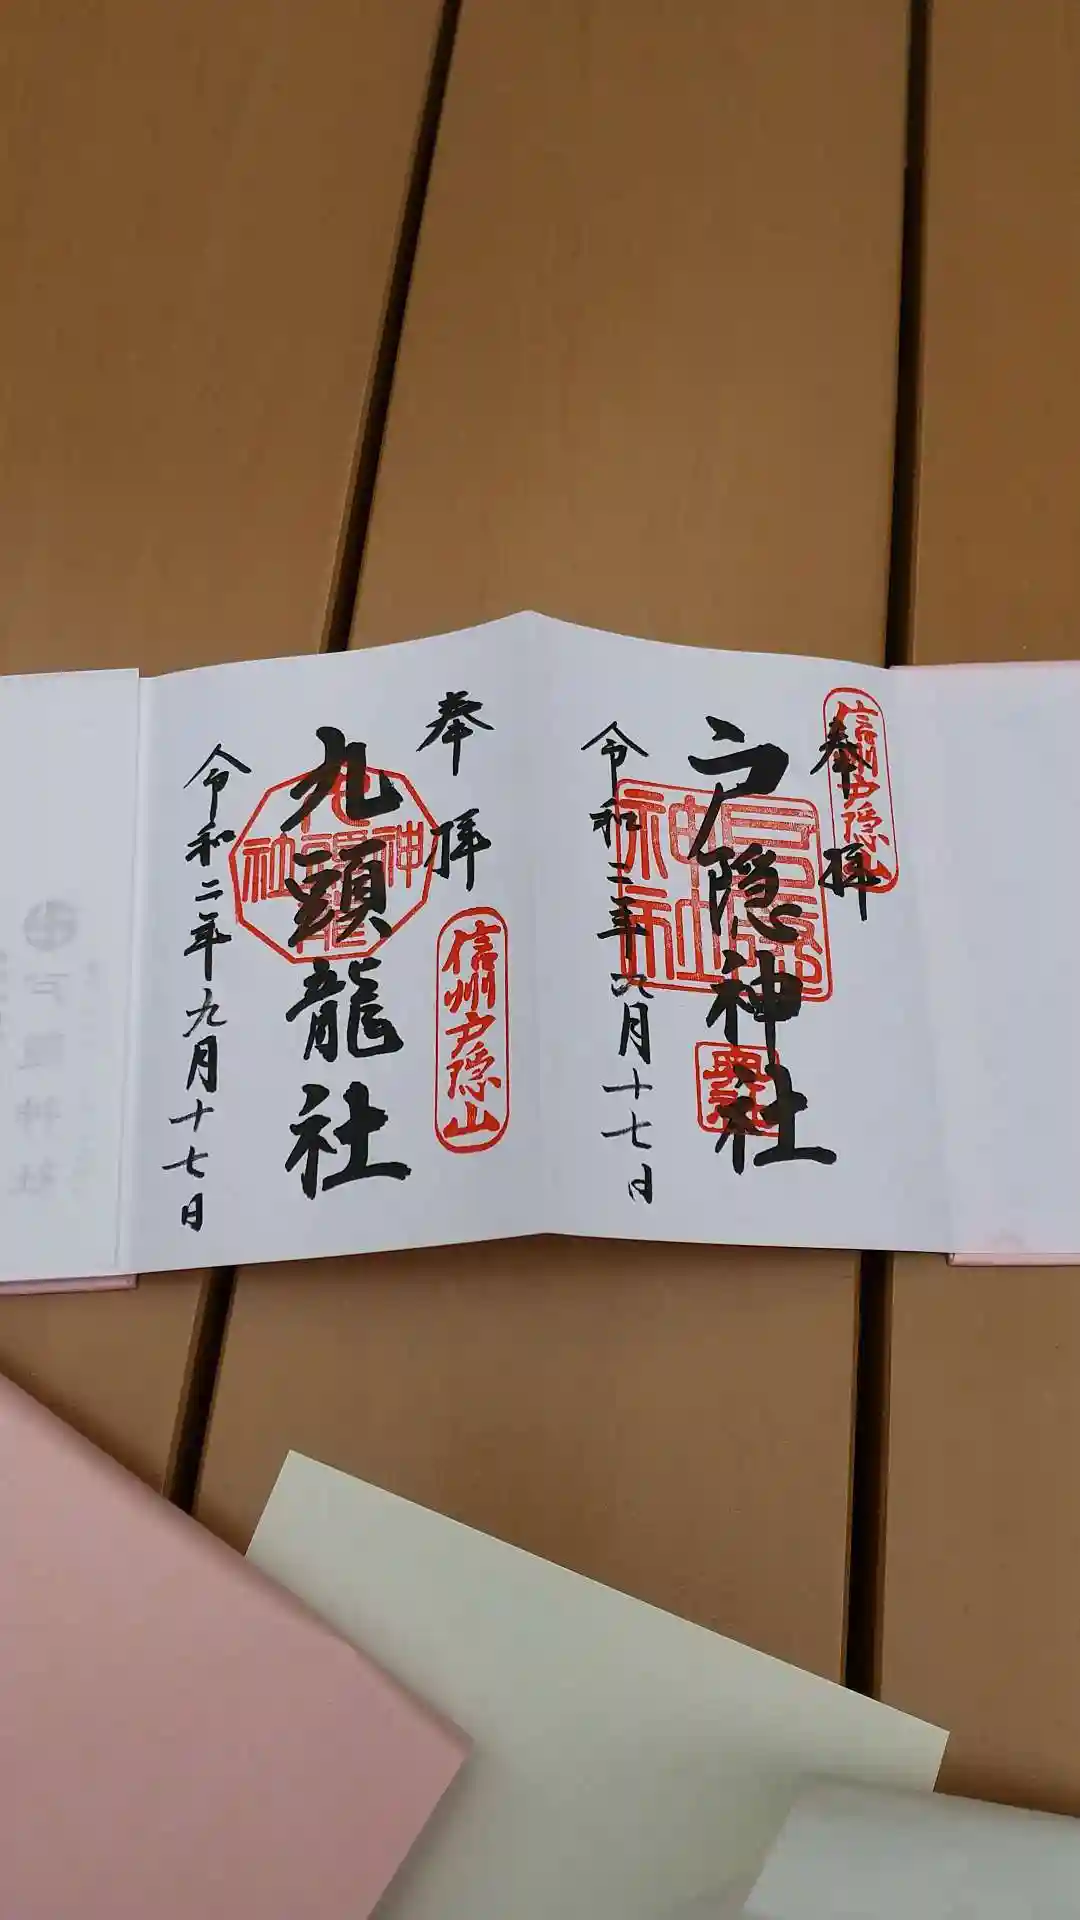 奉拝
信州戸隠山
戸隠神社
戸隠神社
令和二年
月十七日
奉拝
信州戸隠山
九頭龍社
令和二年九月十七日